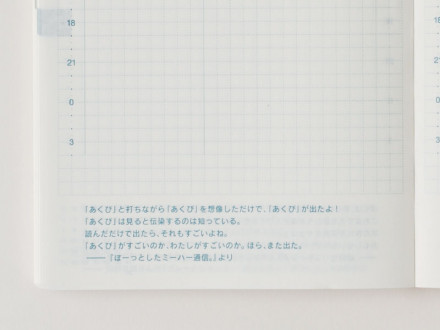 18
21
0
3
21
0
3
「あくび」と打ちながら「あくび」を想像しただけで、「あくび」が出たよ！
「あくび」は見ると伝染するのは知っている。
読んだだけで出たら、それもすごいよね。
「あくび」がすごいのか、わたしがすごいのか。ほら、また出た。
——『ぼーっとしたミーハー通信。』より